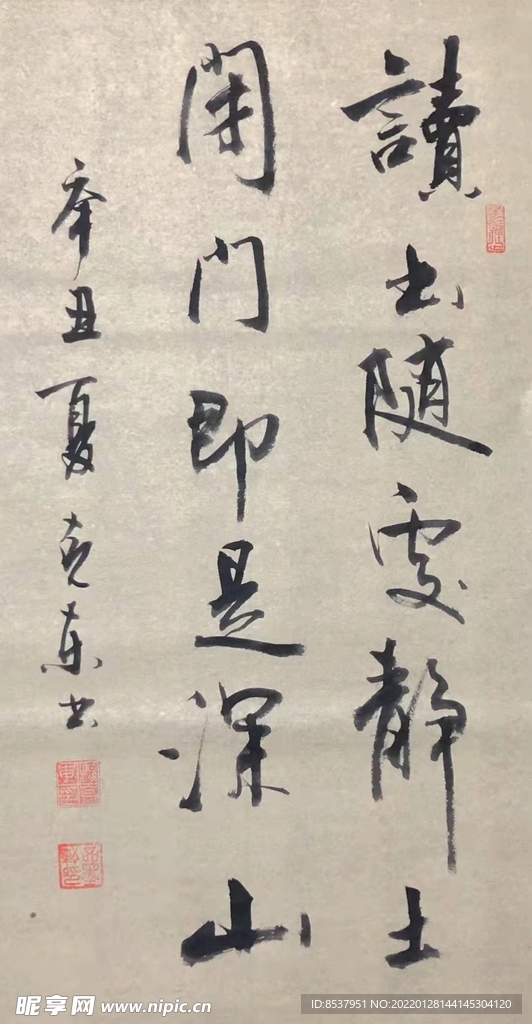 讀書随處靜土
閉門即是深山
辛丑夏克东书
昵享网 www.nipic.cn
ID:8537951 NO:20220128144145304120